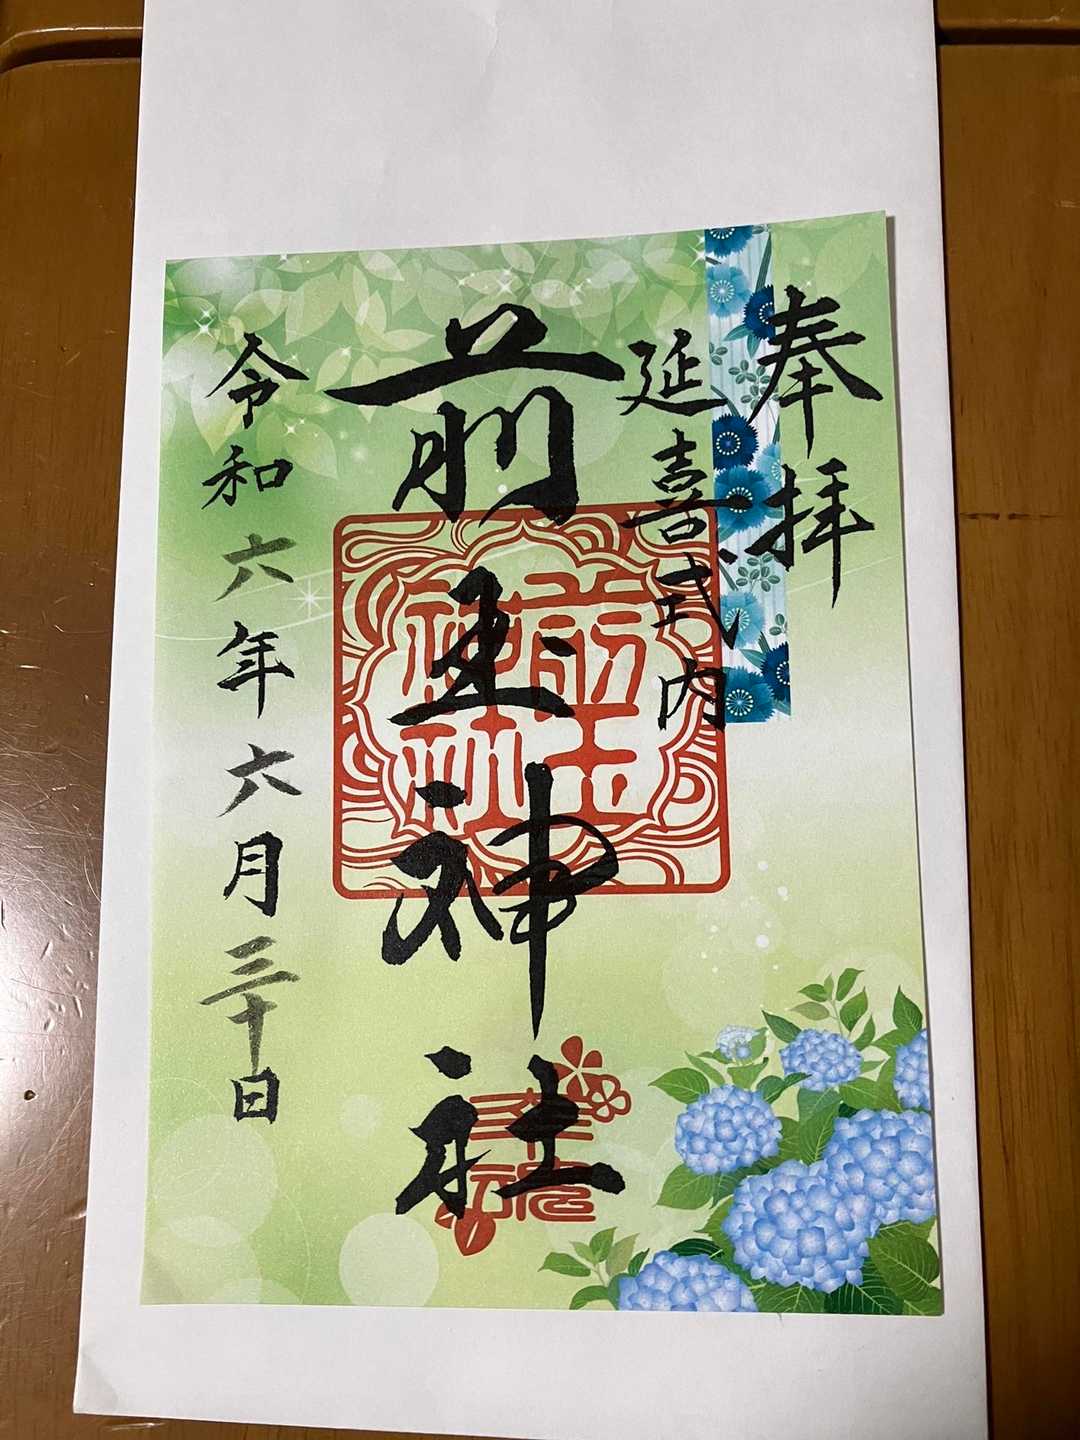 奉拝
延喜式内
前玉神社
前玉神社
幸魂
令和六年六月三十日